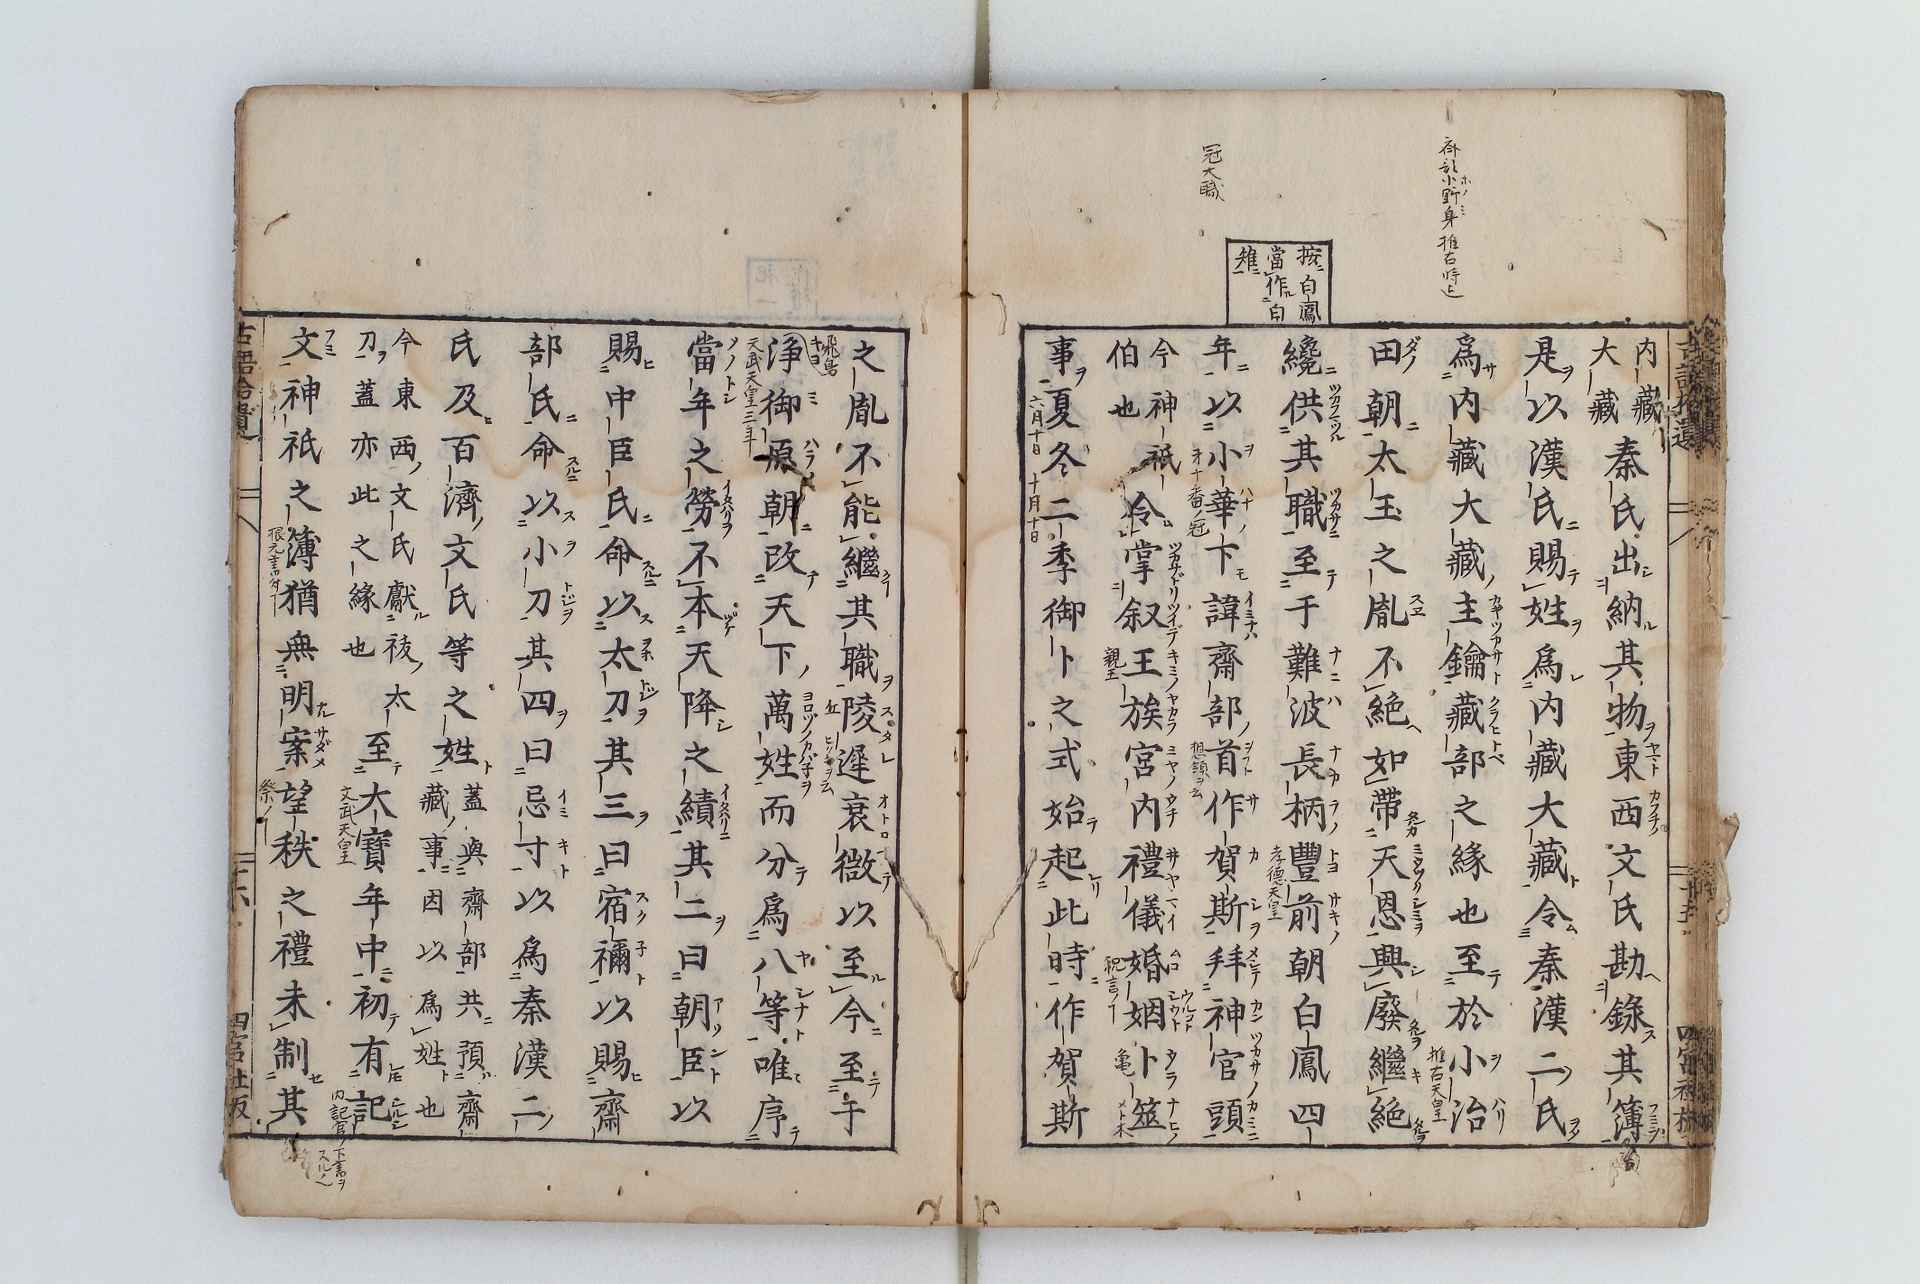 冠大職
按白鳳
當作白
雉
古語拾遺
内藏
大藏
秦氏出納其物東西文氏勘錄其簿
是以漢氏賜姓爲内藏大藏令秦漢二氏
爲内藏大藏主鑰藏部之緣也至於小治
推古天皇
田朝太玉之胤不絶如帶天恩興廢繼絶
纔供其職至于難波長柄豐前朝白鳳四
孝德天皇
年以小華下諱齋部首作賀斯拜神官頭
今神祇
伯也
令掌叙王族宮内禮儀婚姻卜筮
親王
事夏冬二季御卜之式始起此時作賀斯
六月十日 十月十日
之胤不能繼其職陵遲衰微以至今至于
飛鳥
淨御原朝改天下萬姓而分爲八等唯序
天武天皇三年
當年之勞不本天降之績其二曰朝臣以
賜中臣氏命以太刀其三曰宿禰以賜齋
部氏命以小刀其四曰忌寸以爲秦漢二
氏及百濟文氏等之姓
蓋與齋部共預齋
藏事因以爲姓也
今東西文氏獻祓太
刀蓋亦此之緣也
至大寶年中初有記
文武天皇
文神祇之簿猶無明案望秩之禮未制其
古語拾遺
十六
四宮社板